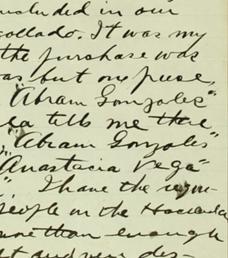 included in our
collado. It was my
the purchase was
as but one piece,
"Abram Gonzoles"
ca tells me that
"Abram Gonzoles"
Anastacia Vega"
"I have the
people on the Hacienda
more than enough